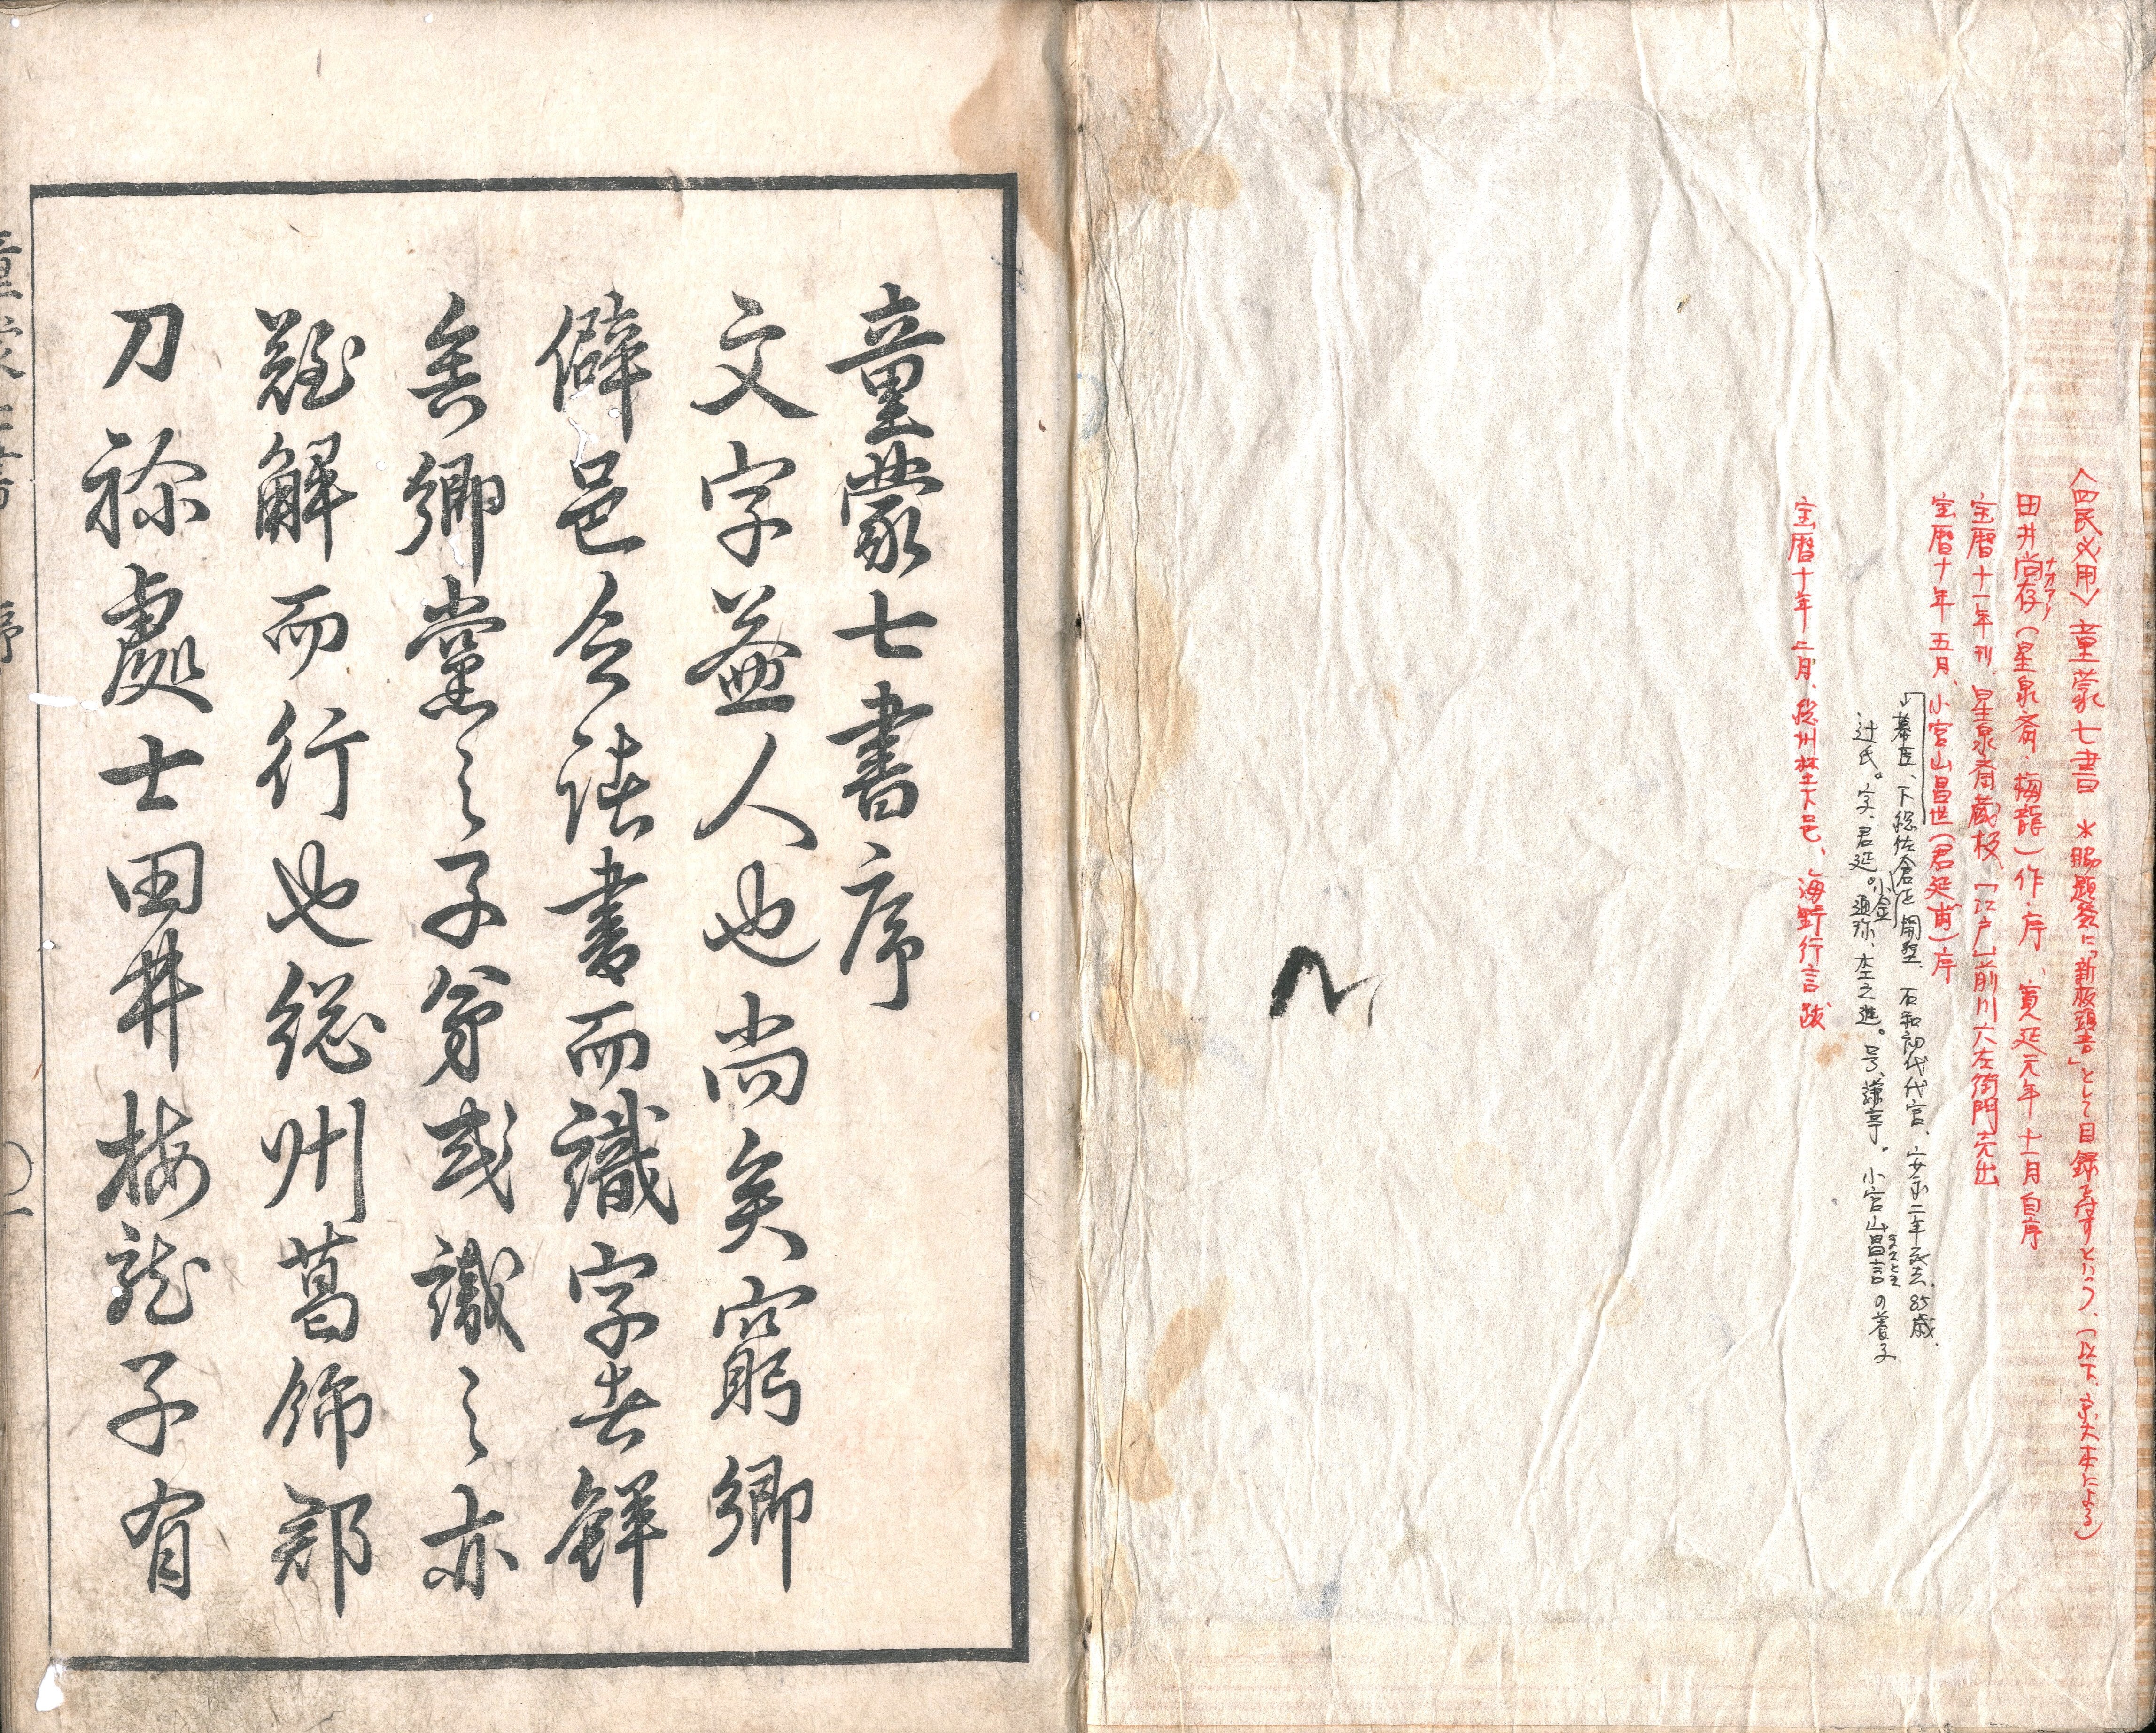 〈四民必用〉童蒙七書 ＊賜題簽に「新板頭書」として目録を付すという、(以下、京大本による)
田井尚存(星泉斎・梅龍)作・序、寛延元年十一月自序
ナオアリ
宝暦十一年刊、星泉斎蔵板、「江戸」前川六左衛門売出
宝暦十年五月、小宮山昌世(君延甫)序
幕臣、下総佐倉 小金 開墾、石和初代代官、安永二年死去、85歳、
辻氏。字、君延。通称、杢之進。号、謙亭。小宮山昌言の養子
宝暦十年二月、総州埜下邑、海野行言跋
童蒙七書序
文字益人也尚矣窮郷
僻邑令読書而識字者鮮
矣郷黨之子弟或識之亦
難解而行也総州葛飾郡
刀祢處士田井梅龍子有
童蒙七書 序 〇一